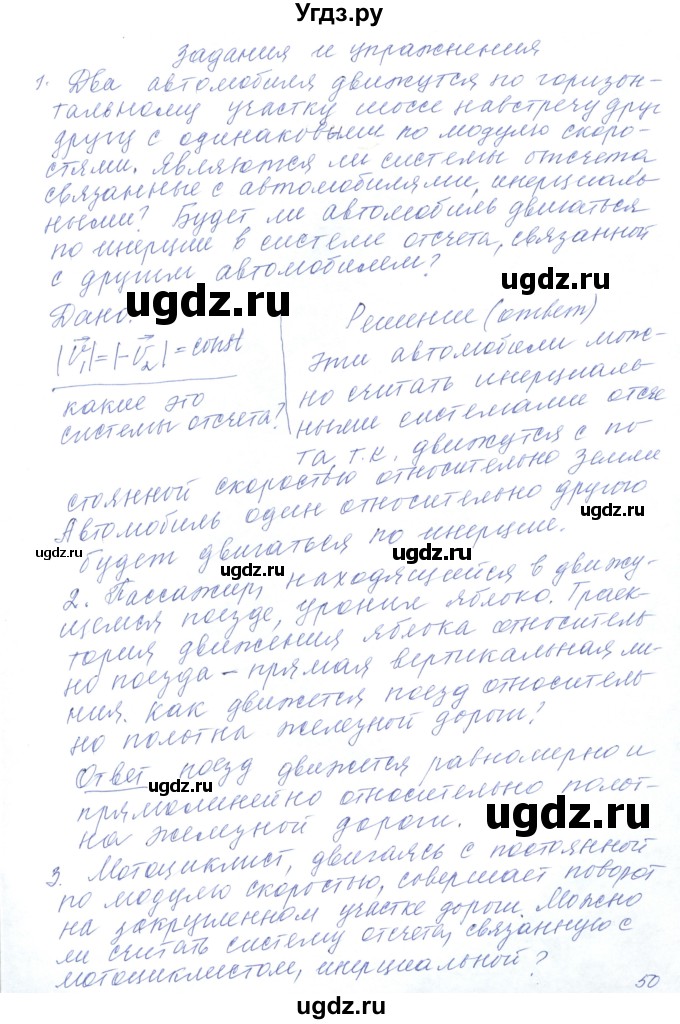 Угдз.ру
Задания и упражнения
1. Два автомобиля движутся по горизон-
тальному участку шоссе навстречу друг
другу с одинаковыми по модулю скоро-
стями. Являются ли системы отсчета
связанные с автомобилями, инерциаль-
ными? Будет ли автомобиль двигаться
по инерции в системе отсчета, связанной
с другим автомобилем?
ugdz.ru ugdz.ru
Дано: Решение (ответ)
|V⃗₁|=|-V⃗₂|=const Эти автомобили мож-
но считать инерциаль-
какие это ными системами отсче
системы отсчета? та, т.к. движутся с по
стоянной скоростью относительно Земли
Автомобиль один относительно другого
ugdz.ru
будет двигаться по инерции.
ugdz.ru ugdz.ru
2. Пассажир, находящийся в движу-
щемся поезде, уронил яблоко. Траек-
ugdz.ru
тория движения яблока относитель
но поезда – прямая вертикальная ли-
ния. Как движется поезд относитель
но полотна железной дороги?
Ответ поезд движется равномерно и
ugdz.ru
прямолинейно относительно полот-
на железной дороги.
ugdz.ru
3. Мотоциклист, двигаясь с постоянной
по модулю скоростью, совершает поворот
на закругленном участке дороги. Можно
ли считать систему отсчета, связанную с
ugdz.ru ugdz.ru
мотоциклистом, инерциальной?
50
ugdz.ru